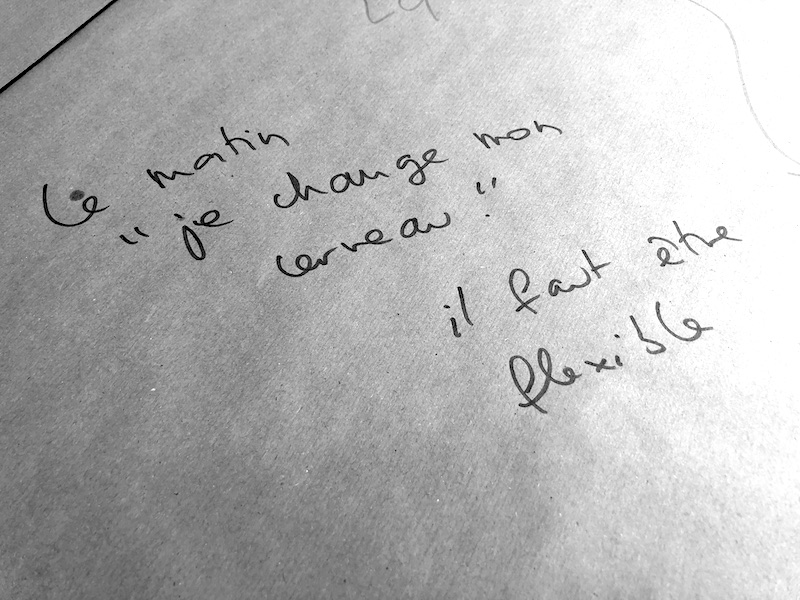 Le matin
"je change mon
cerveau"
il faut être
flexible